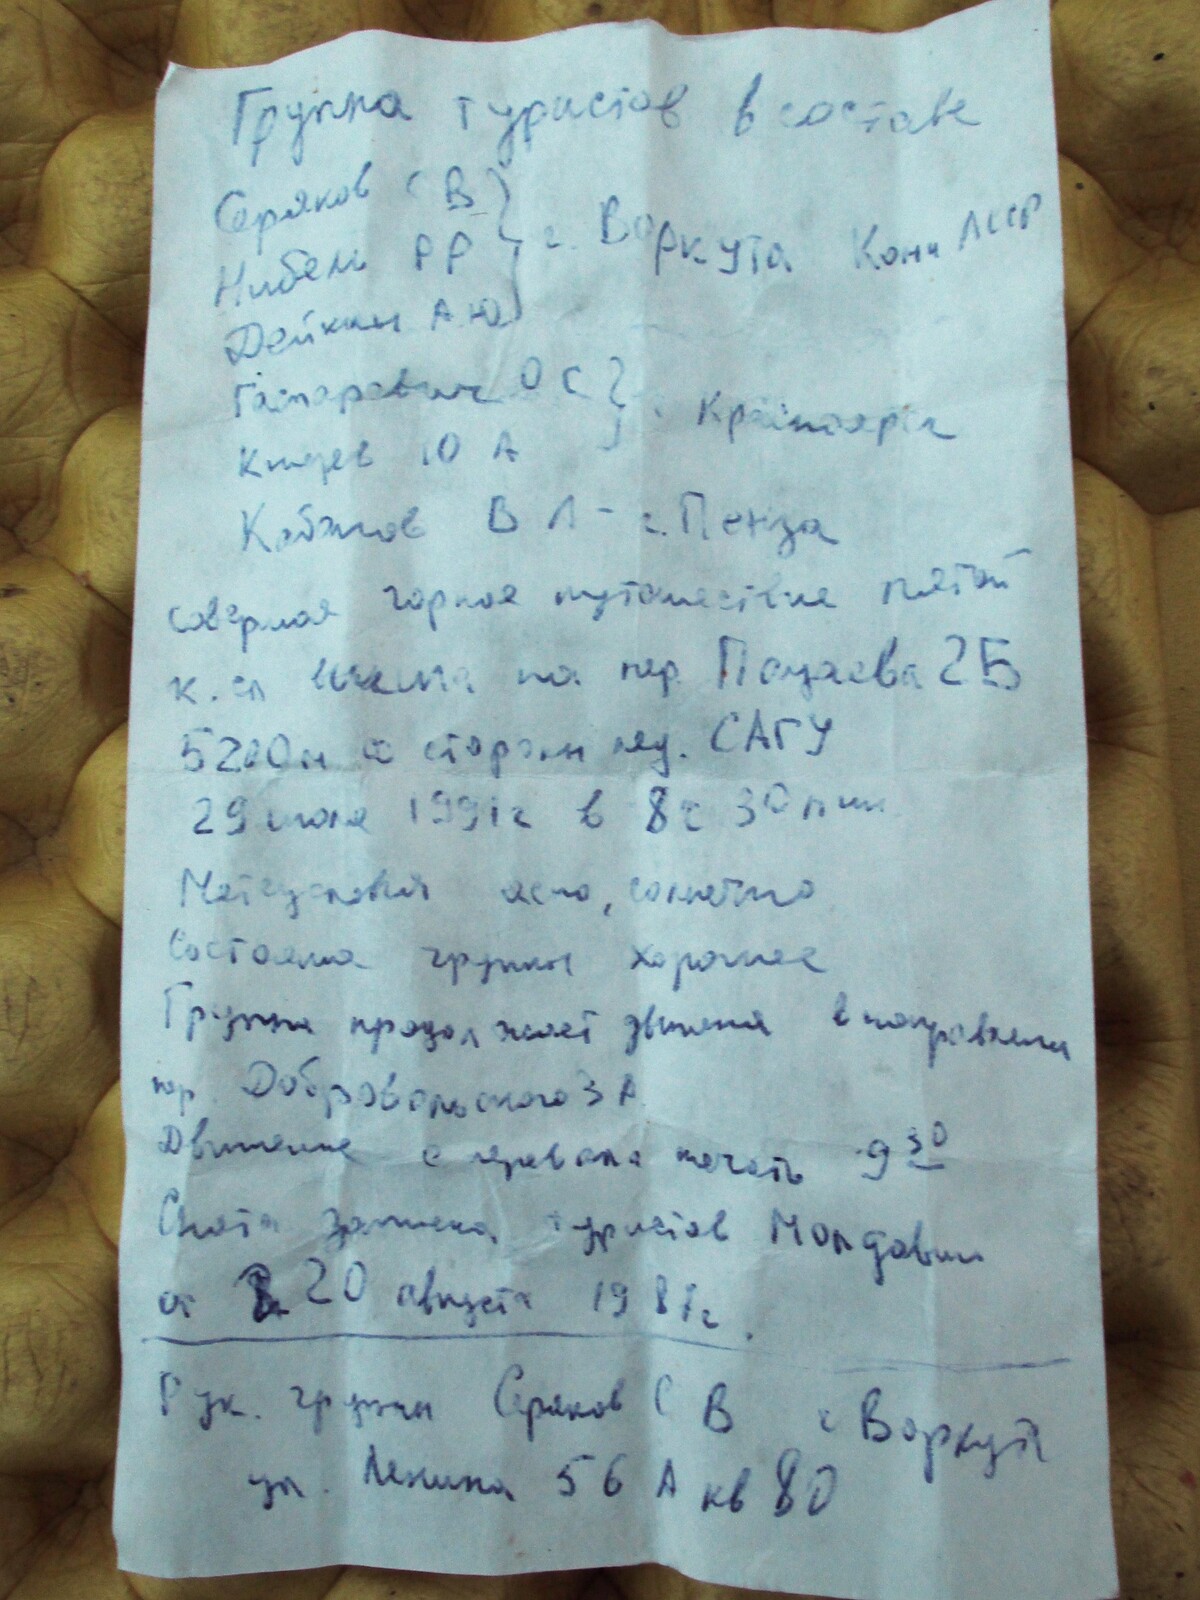 Группа туристов в составе
Серяков С В
Нибель РР } г. Воркута Коми АССР
Дейкин А Ю
О С
Ю А } Красноярск
В Л - г. Пенза
совершая горное путешествие пятой
к. сл на пер. 2Б
5200м со стороны лед. САГУ
29 июля 1991г в 8ч 30 мин
Метеусловия ясно, солнечно
Состояние группы хорошее
Группа продолжает движение в направлении
пер. Добровольского 3 А
Движение с перевала 9 30
Снята записка туристов Молдавии
от 20 августа 1981г.
Рук. группы Серяков С В г Воркута
ул. Ленина 56 А кв 80